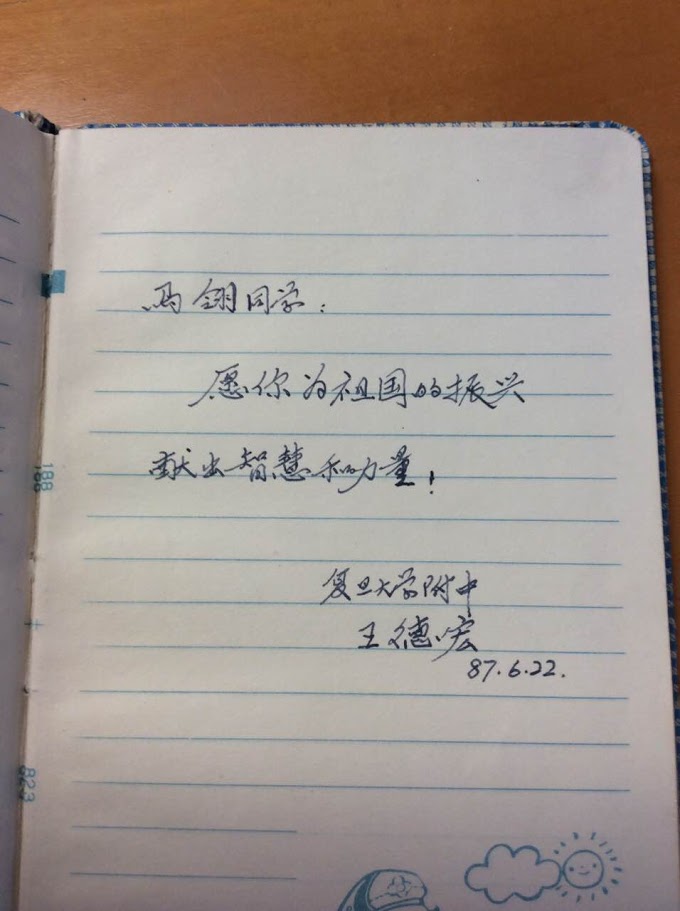 马翎同学：
愿你为祖国的振兴
献出智慧和力量！
复旦大学附中
王德宏
87.6.22.
188
188
823